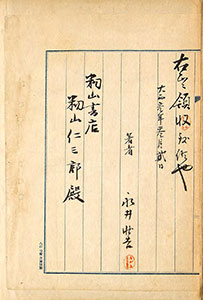 右正ニ領収致候也
大正年月日
著者 永井壮吉
籾山書店
籾山仁三郎殿